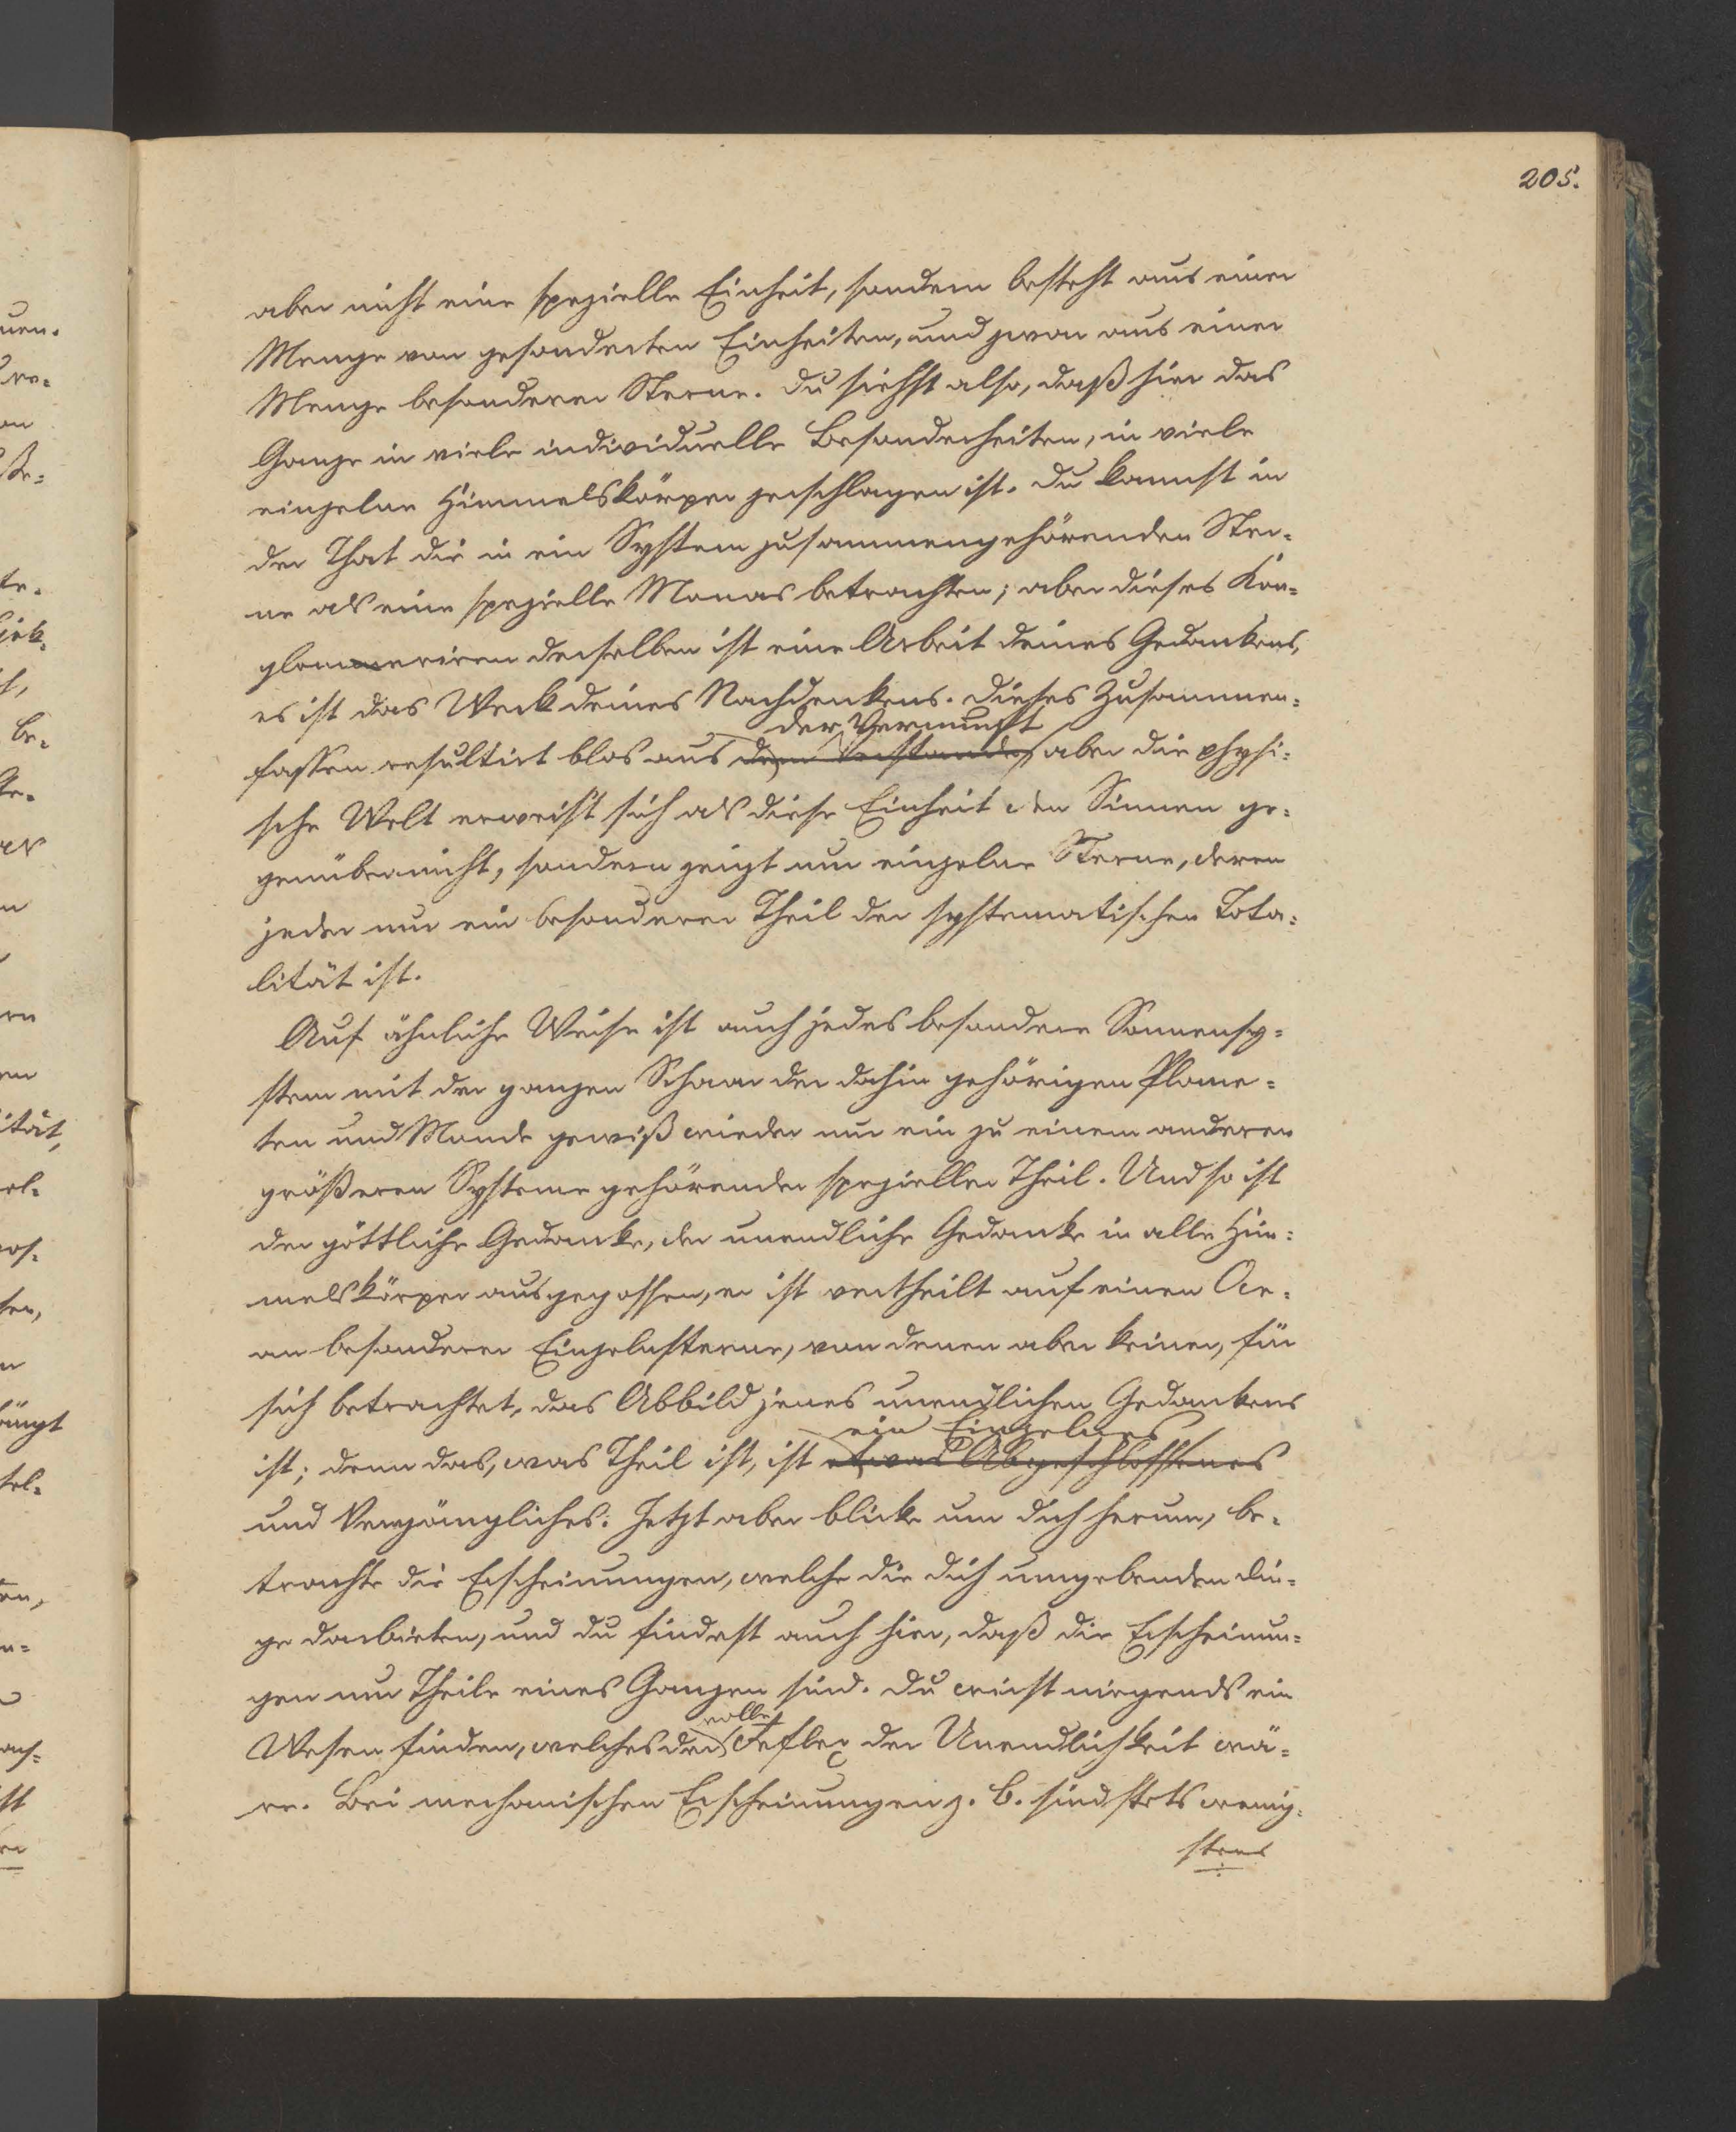 205.
aber nicht eine spezielle Einheit, sondern besteht aus einer
Menge von gesonderten Einheiten, und zwar aus einer
Menge besonderer Sterne. Du siehst also, daß hier das
Ganze in viele individuelle Besonderheiten, in viele
einzelne Himmelskörper zerschlagen ist. Du kannst in
der That die in ein System zusammengehörenden Ster-
ne als eine spezielle Monas betrachten; aber dieses Kon-
glomeriren derselben ist eine Arbeit deines Gedankens,
es ist das Werk deines Nachdenkens. Dieses Zusammen-
der Vernunft
fassen resultirt blos aus dem Verstande, aber die physi-
sche Welt erweist sich als diese Einheit den Sinnen ge-
genüber nicht, sondern zeigt nur einzelne Sterne, deren
jeder nur ein besonderer Theil der systematischen Tota-
lität ist.
Auf ähnliche Weise ist auch jedes besondere Sonnensy-
stem mit der ganzen Schaar der dahin gehörigen Plane-
ten und Monde gewiß wieder nur ein zu einem anderen
größeren Systeme gehörender spezieller Theil. Und so ist
der göttliche Gedanke, der unendliche Gedanke in alle Him-
melskörper ausgegossen, er ist vertheilt auf einen Oce-
an besonderer Einzelnsterne, von denen aber keiner, für
sich betrachtet, das Abbild jenes unendlichen Gedankens
ein Einzelnes
ist; denn das, was Theil ist, ist etwas Abgeschlossenes
und Vergängliches. Jetzt aber blicke um dich herum, be-
trachte die Erscheinungen, welche die dich umgebenden Din-
ge darbieten, und du findest auch hier, daß die Erscheinun-
gen nur Theile eines Ganzen sind. Du wirst nirgends ein
volle
Wesen finden, welches der Reflex der Unendlichkeit wä-
re. Bei mechanischen Erscheinungen z. B. sind stets wenig-
stens